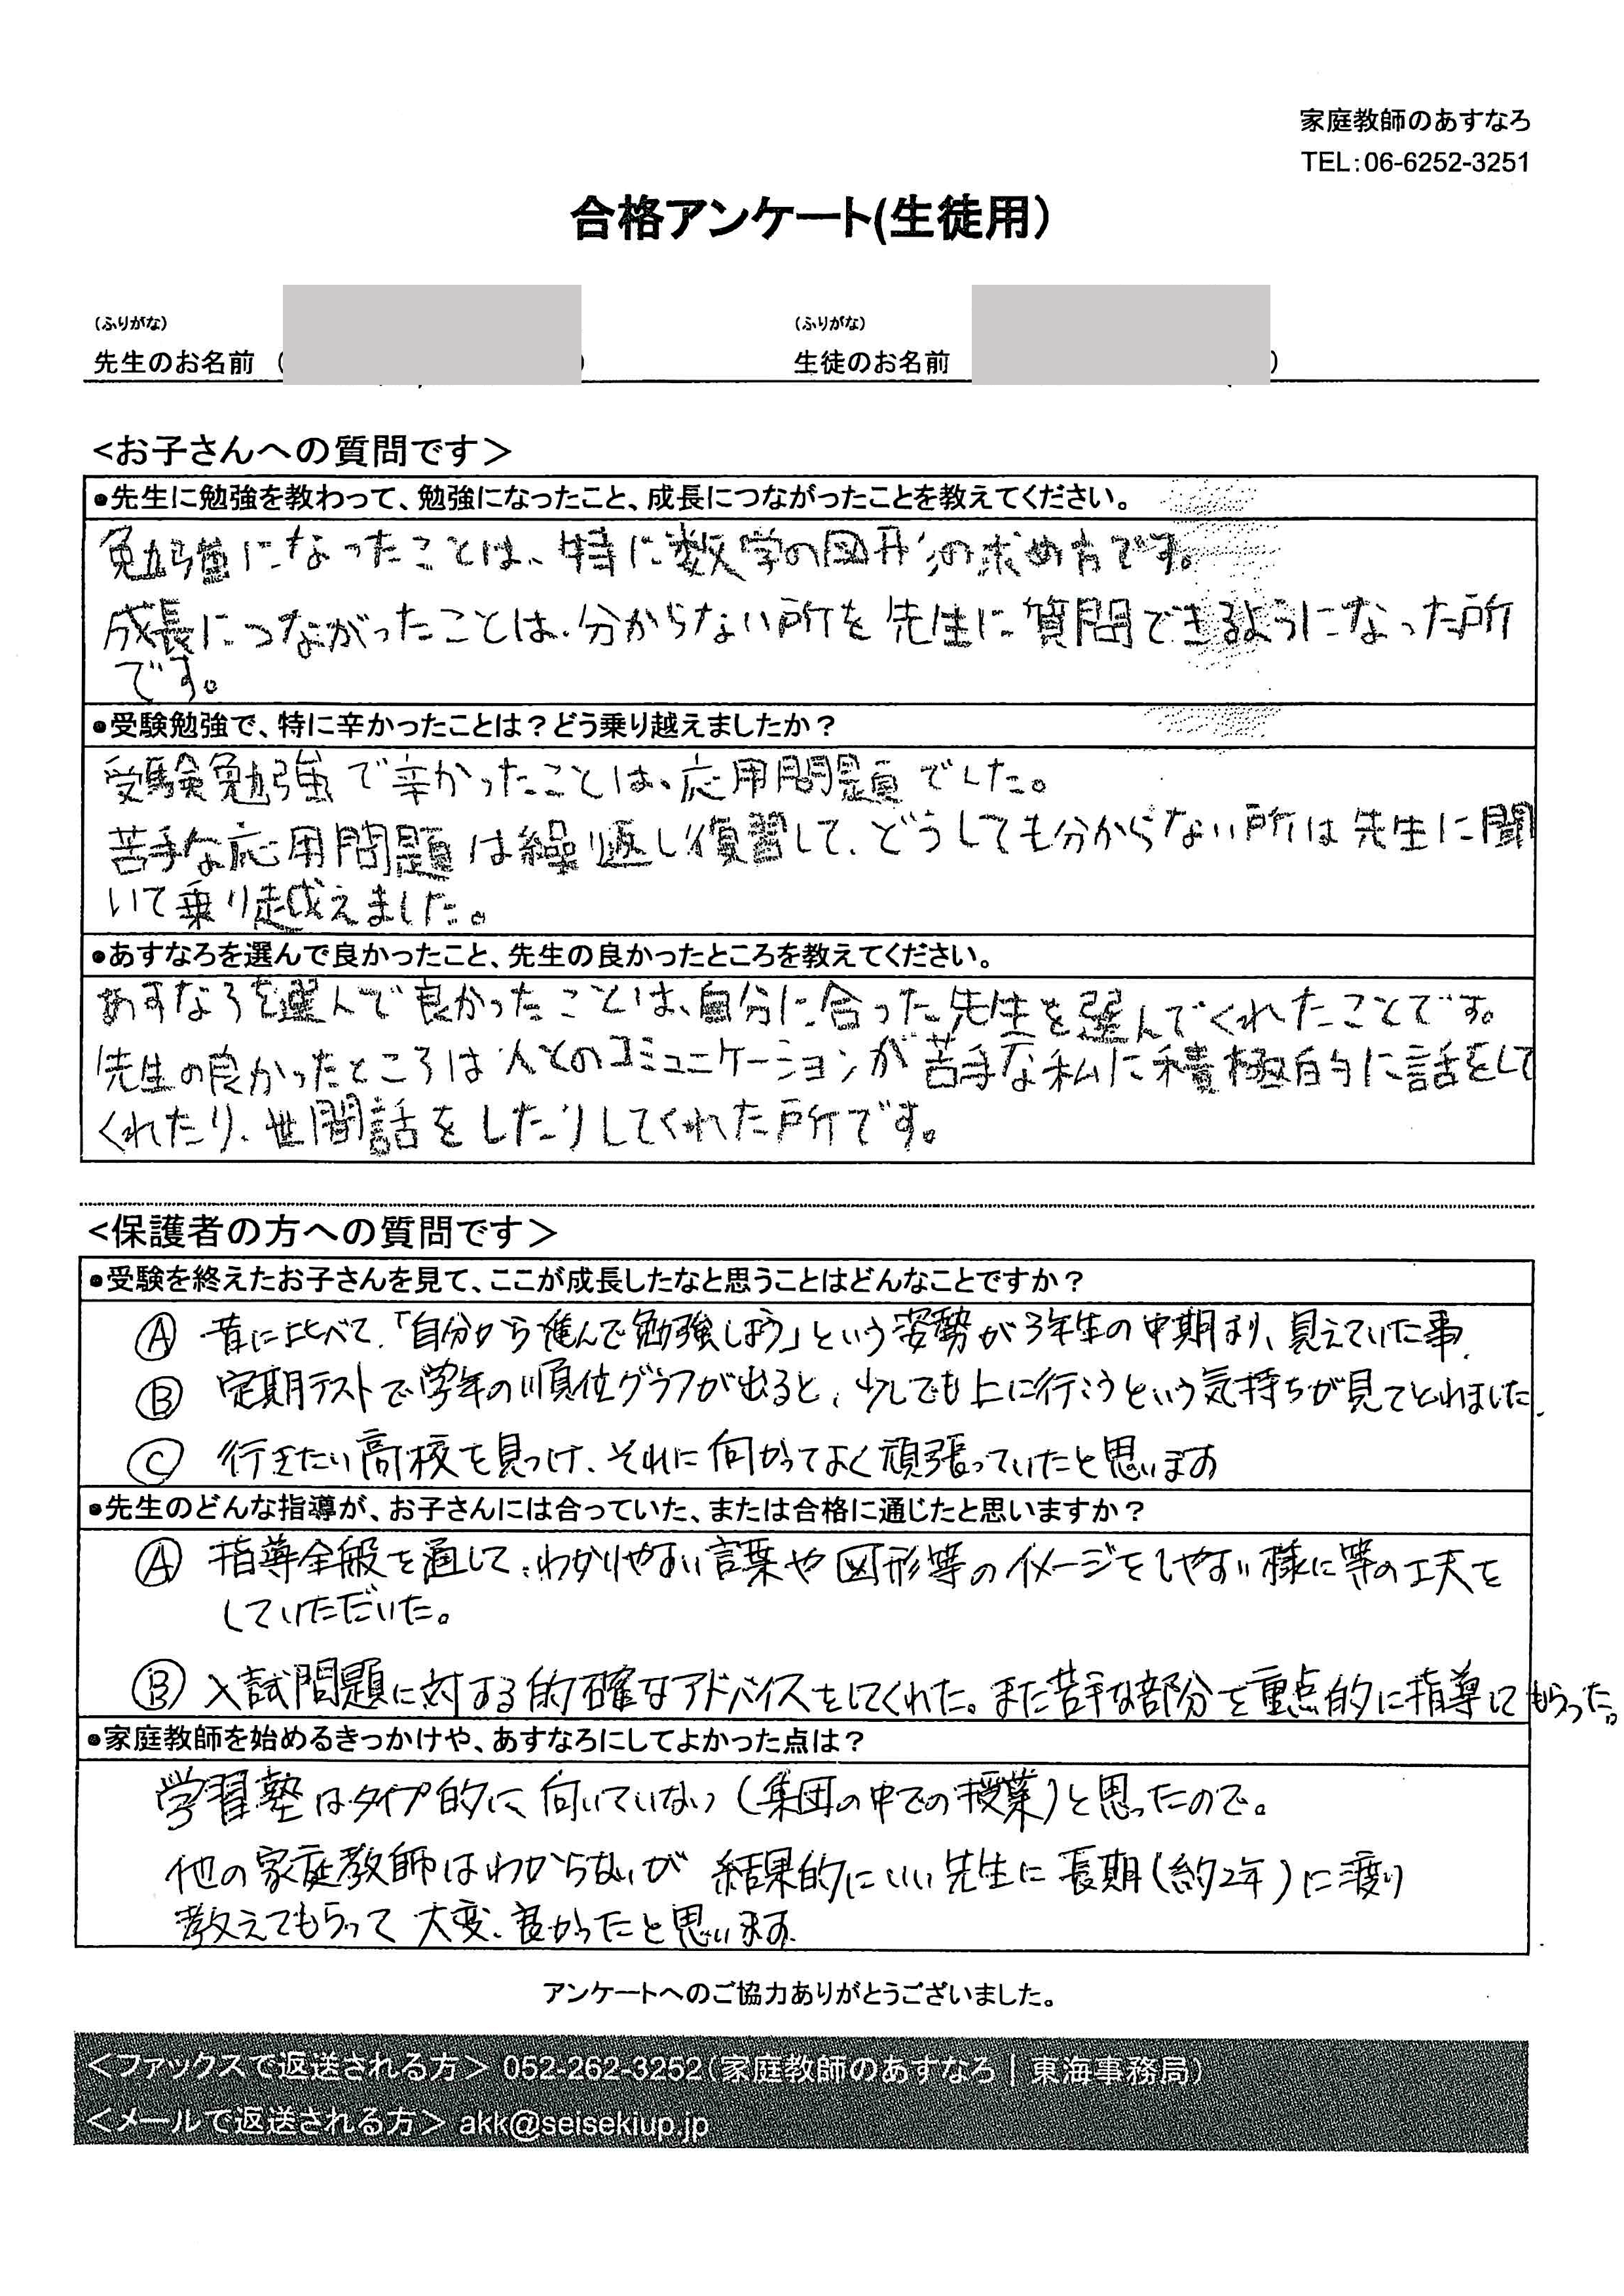 家庭教師のあすなろ
TEL:06-6252-3251
合格アンケート(生徒用)
(ふりがな)
(ふりがな)
先生のお名前 ( )
生徒のお名前 )
<お子さんへの質問です>
●先生に勉強を教わって、勉強になったこと、成長につながったことを教えてください。
勉強になったことは、特に数学の図形の求め方です。
成長につながったことは、分からない所を先生に質問できるようになった所
です。
●受験勉強で、特に辛かったことは?どう乗り越えましたか?
受験勉強で辛かったことは、応用問題でした。
苦手な応用問題は繰り返し復習して、どうしても分からない所は先生に聞
いて乗り越えました。
●あすなろを選んで良かったこと、先生の良かったところを教えてください。
あすなろを選んで良かったことは、自分に合った先生を選んでくれたことです。
先生の良かったところは人とのコミュニケーションが苦手な私に積極的に話をして
くれたり、世間話をしたりしてくれた所です。
<保護者の方への質問です>
●受験を終えたお子さんを見て、ここが成長したなと思うことはどんなことですか?
Ⓐ 昔に比べて、「自分から進んで勉強しよう」という姿勢が3年生の中期より、見えていた事。
Ⓑ 定期テストで学年の順位グラフが出ると、少しでも上に行こうという気持ちが見てとれました。
Ⓒ 行きたい高校を見つけ、それに向かってよく頑張っていたと思います
●先生のどんな指導が、お子さんには合っていた、または合格に通じたと思いますか?
Ⓐ 指導全般を通して、わかりやすい言葉や図形等のイメージをしやすい様に等の工夫を
していただいた。
Ⓑ 入試問題に対する的確なアドバイスをしてくれた。また苦手な部分を重点的に指導してもらった。
●家庭教師を始めるきっかけや、あすなろにしてよかった点は?
学習塾はタイプ的に向いていない(集団の中での授業)と思ったので。
他の家庭教師はわからないが 結果的にいい先生に長期(約2年)に渡り
教えてもらって大変、良かったと思います。
アンケートへのご協力ありがとうございました。
<ファックスで返送される方> 052-262-3252(家庭教師のあすなろ | 東海事務局)
<メールで返送される方> akk@seisekiup.jp